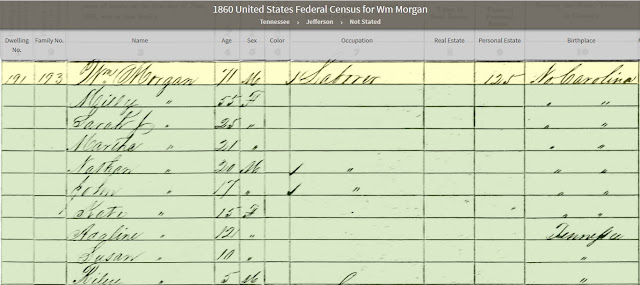 1860 United States Federal Census for Wm Morgan
Tennessee Jefferson Not Stated
Dwelling No. Family No. Name Age Sex Color Occupation Real Estate Personal Estate Birthplace
191 193 Wm Morgan 71 M 1 Laborer 125 No Carolina
Milly " 55 F " "
Sarah J " 25 " " "
Martha " 21 " " "
Nathan " 20 M 1 " " "
John " 17 " 1 " " "
Kate " 15 F " "
" 12 " Tennessee
Susan " 10 " "
Riley " 5 M "